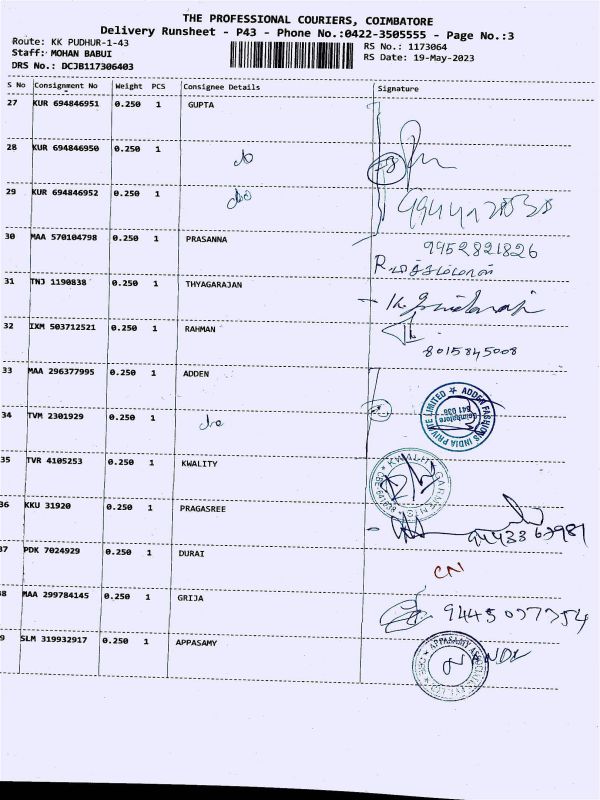 THE PROFESSIONAL COURIERS, COIMBATORE
Delivery Runsheet - P43 - Phone No.:0422-3505555 - Page No.:3
Route: KK PUDHUR-1-43
RS No.: 1173064
Staff: MOHAN BABUI
RS Date: 19-May-2023
DRS No.: DCJB117306403
S No Consignment No Weight PCS Consignee Details Signature
27 KUR 694846951 0.250 1 GUPTA
28 KUR 694846950 0.250 1 do
29 KUR 694846952 0.250 1 do
30 MAA 570104798 0.250 1 PRASANNA 9952821826
31 TNJ 1190838 0.250 1 THYAGARAJAN
32 IXM 503712521 0.250 1 RAHMAN
8015845008
33 MAA 296377995 0.250 1 ADDEN
ADDEN FASHIONS INDIA PRIVATE LIMITED
Coimbatore
641 038
34 TVM 2301929 0.250 1 do
35 TVR 4105253 0.250 1 KWALITY
KWALITY GARMENTS
36 KKU 31920 0.250 1 PRAGASREE
9443362981
37 PDK 7024929 0.250 1 DURAI CN
38 MAA 299784145 0.250 1 GRIJA
39 SLM 319932917 0.250 1 APPASAMY